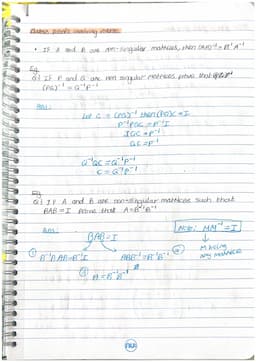 • If A and B are non-singular matrices, then (AB)⁻¹ = B⁻¹A⁻¹
Eg.
Q) If P and Q are non singular matrices prove that
(PQ)⁻¹ = Q⁻¹P⁻¹
Ans:
Let C = (PQ)⁻¹ then (PQ)C = I
P⁻¹PQC = P⁻¹I
IQC = P⁻¹
QC = P⁻¹
Q⁻¹QC = Q⁻¹P⁻¹
C = Q⁻¹P⁻¹
Eg.
Q) If A and B are non-singular matrices such that
BAB = I prove that A = B⁻¹B⁻¹
Ans:
BAB = I
Note: MM⁻¹ = I
M being
any matrice
① B⁻¹BAB = B⁻¹I
② ABB⁻¹ = B⁻¹B⁻¹
③ A = B⁻¹B⁻¹